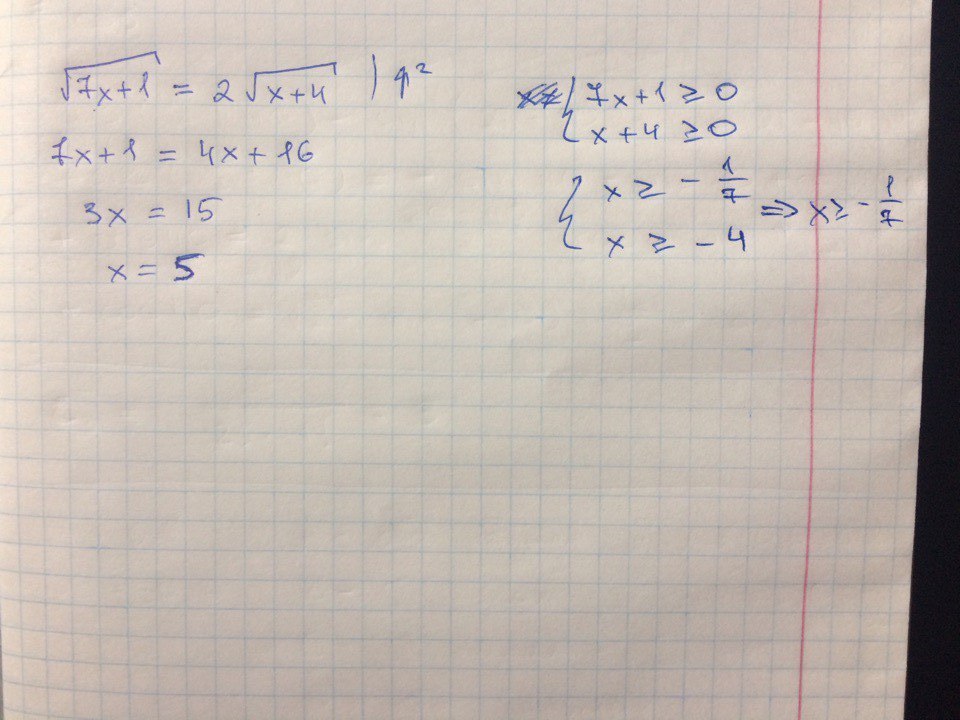 √7x+1 = 2√x+4 | ↑²
7x+1 = 4x+16
3x = 15
x = 5
{ 7x+1 ≥ 0
x+4 ≥ 0
{ x ≥ -1/7 ⇒ x ≥ -1/7
x ≥ -4